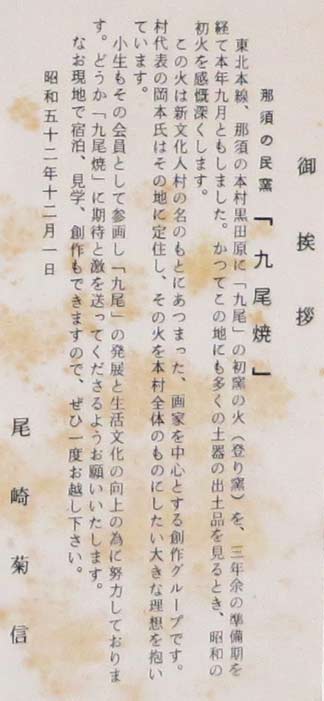 御挨拶
那須の民窯「九尾焼」
東北本線、那須の本村黒田原に「九尾」の初窯の火（登り窯）を、三年余の準備期を
経て本年九月ともしました。かつてこの地にも多くの土器の出土品を見るとき、昭和の
初火を感慨深くします。
この火は新文化人村の名のもとにあつまった、画家を中心とする創作グループです。
村代表の岡本氏はその地に定住し、その火を本村全体のものにしたい大きな理想を抱い
ています。
小生もその会員として参画し「九尾」の発展と生活文化の向上の為に努力しておりま
す。どうか「九尾焼」に期待と激を送ってくださるようお願いいたします。
なお現地で宿泊、見学、創作もできますので、ぜひ一度お越し下さい。
昭和五十二年十二月一日
尾崎菊信